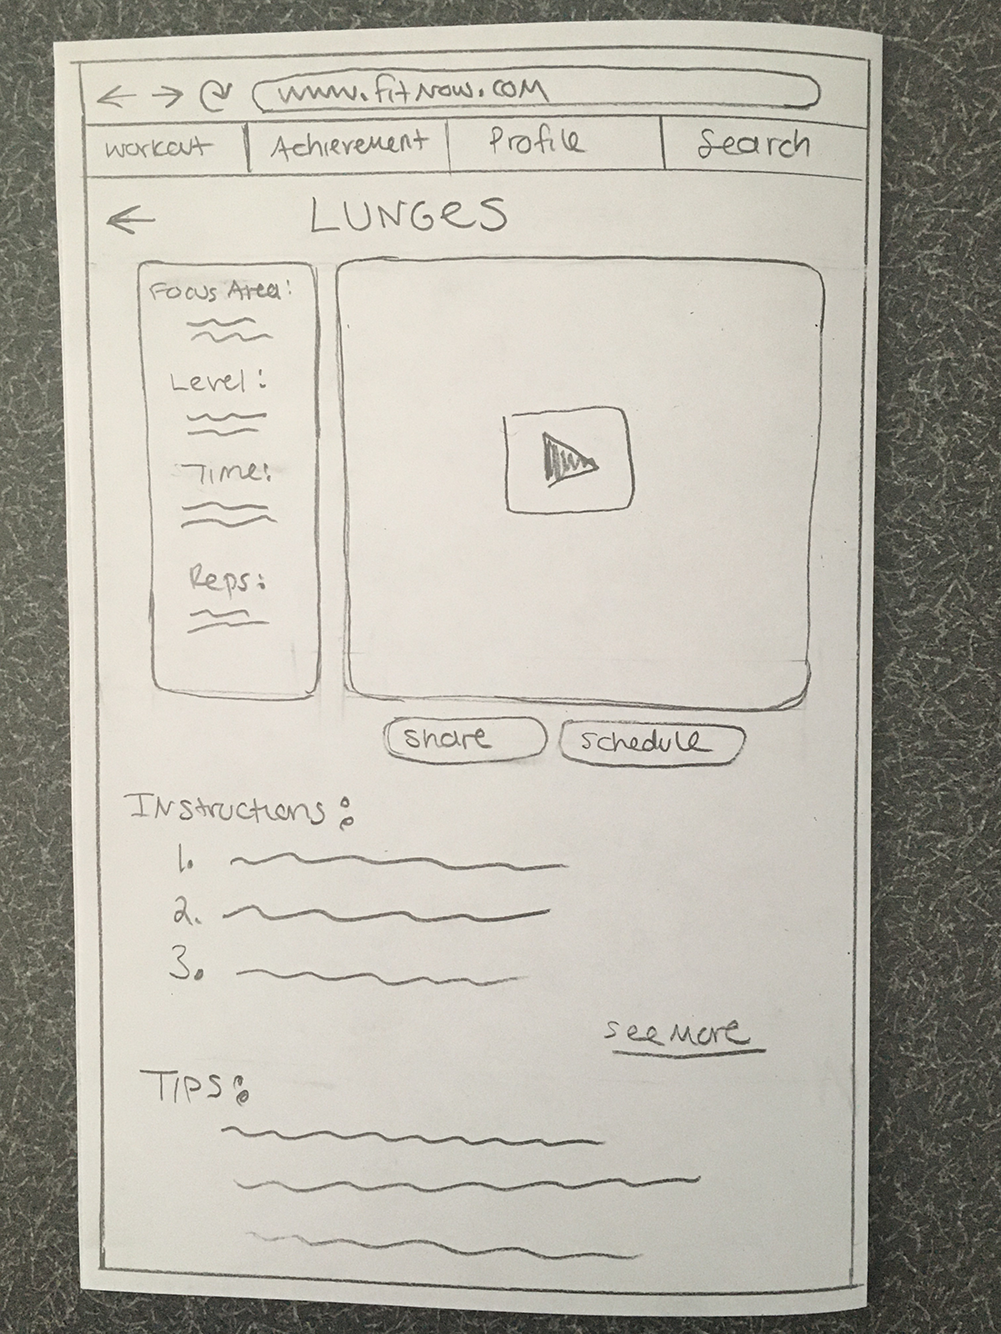 www.fitnow.com
Workout Achievement Profile Search
LUNGES
Focus Area:
Level:
Time:
Reps:
Share Schedule
Instructions:
1.
2.
3.
See More
TIPS: